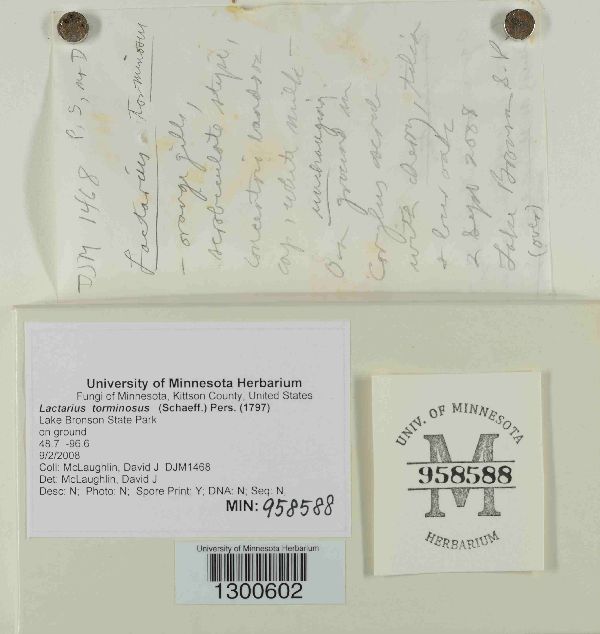 DJM 1468 P, S, M D
Lactarius torminosus
- orange gills,
scrobiculate stipe,
concentric bands on
cap, white milk -
unchanging.
On ground in
Corylus
with cherry, tilia
+ bur oak
2 Sept 2008
Lake Bronson S.P.
(over)
University of Minnesota Herbarium
Fungi of Minnesota, Kittson County, United States
Lactarius torminosus (Schaeff.) Pers. (1797)
Lake Bronson State Park
on ground
48.7 -96.6
9/2/2008
Coll: McLaughlin, David J DJM1468
Det: McLaughlin, David J
Desc: N; Photo: N; Spore Print: Y; DNA: N; Seq: N
MIN: 958588
UNIV. OF MINNESOTA
M
958588
HERBARIUM
University of Minnesota Herbarium
1300602